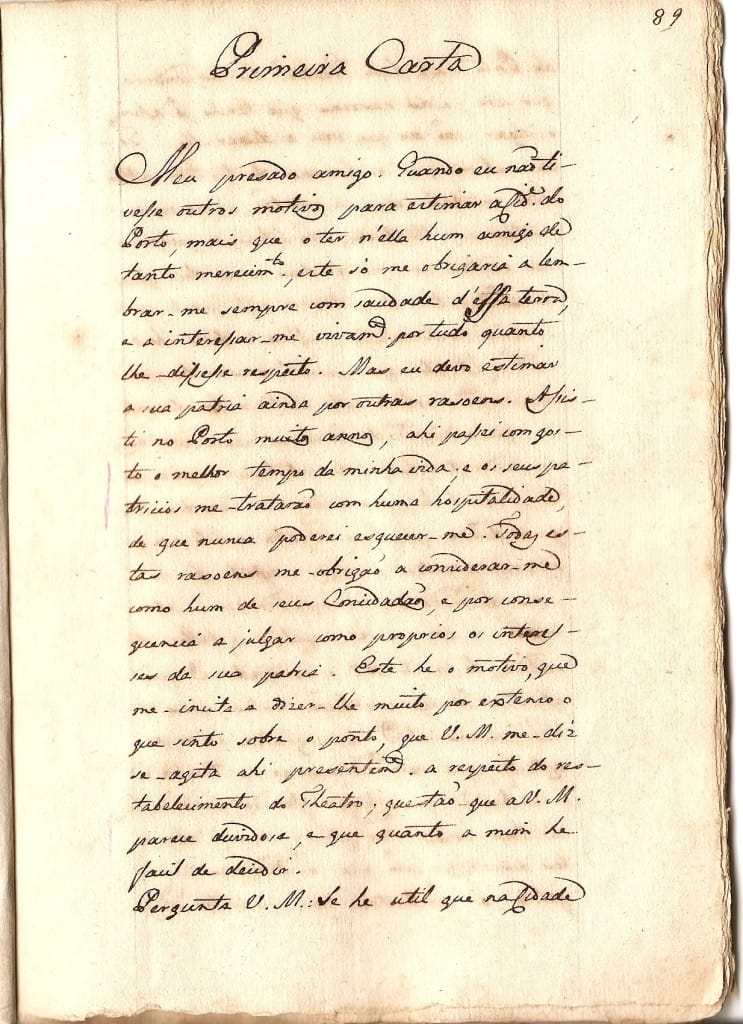 89
Primeira Carta
Meu presado amigo. Quando eu não ti-
vesse outros motivos para estimar a Cid.ᵉ do
Porto, mais que o ter n'ella hum amigo de
tanto merecim.ᵗᵒ, este só me obrigaria a lem-
brar-me sempre com saudade d'essa terra,
e a interessar-me vivam.ᵉ por tudo quanto
lhe-dissesse respeito. Mas eu devo estimar
a sua patria ainda por outras rasoens. Assis-
ti no Porto muitos annos, ahi passei com gos-
to o melhor tempo da minha vida, e os seus pa-
tricios me-tratarão com huma hospitalidade,
de que nunca poderei esquecer-me. Todas es-
tas rasoens me-obrigão a considerar-me
como hum de seus Concidadãos, e por conse-
quencia a julgar como proprios os interes-
ses da sua patria. Este he o motivo, que
me-incita a dizer-lhe muito por extenso o
que sinto sobre o ponto, que V. M. me-diz
se-agita ahi presentem.ᵉ a respeito do res-
tabelecimento do Theatro; questão que a V. M.
parece duvidosa, e que quanto a mim he
facil de decidir.
Pergunta V. M.: Se he util que na Cidade